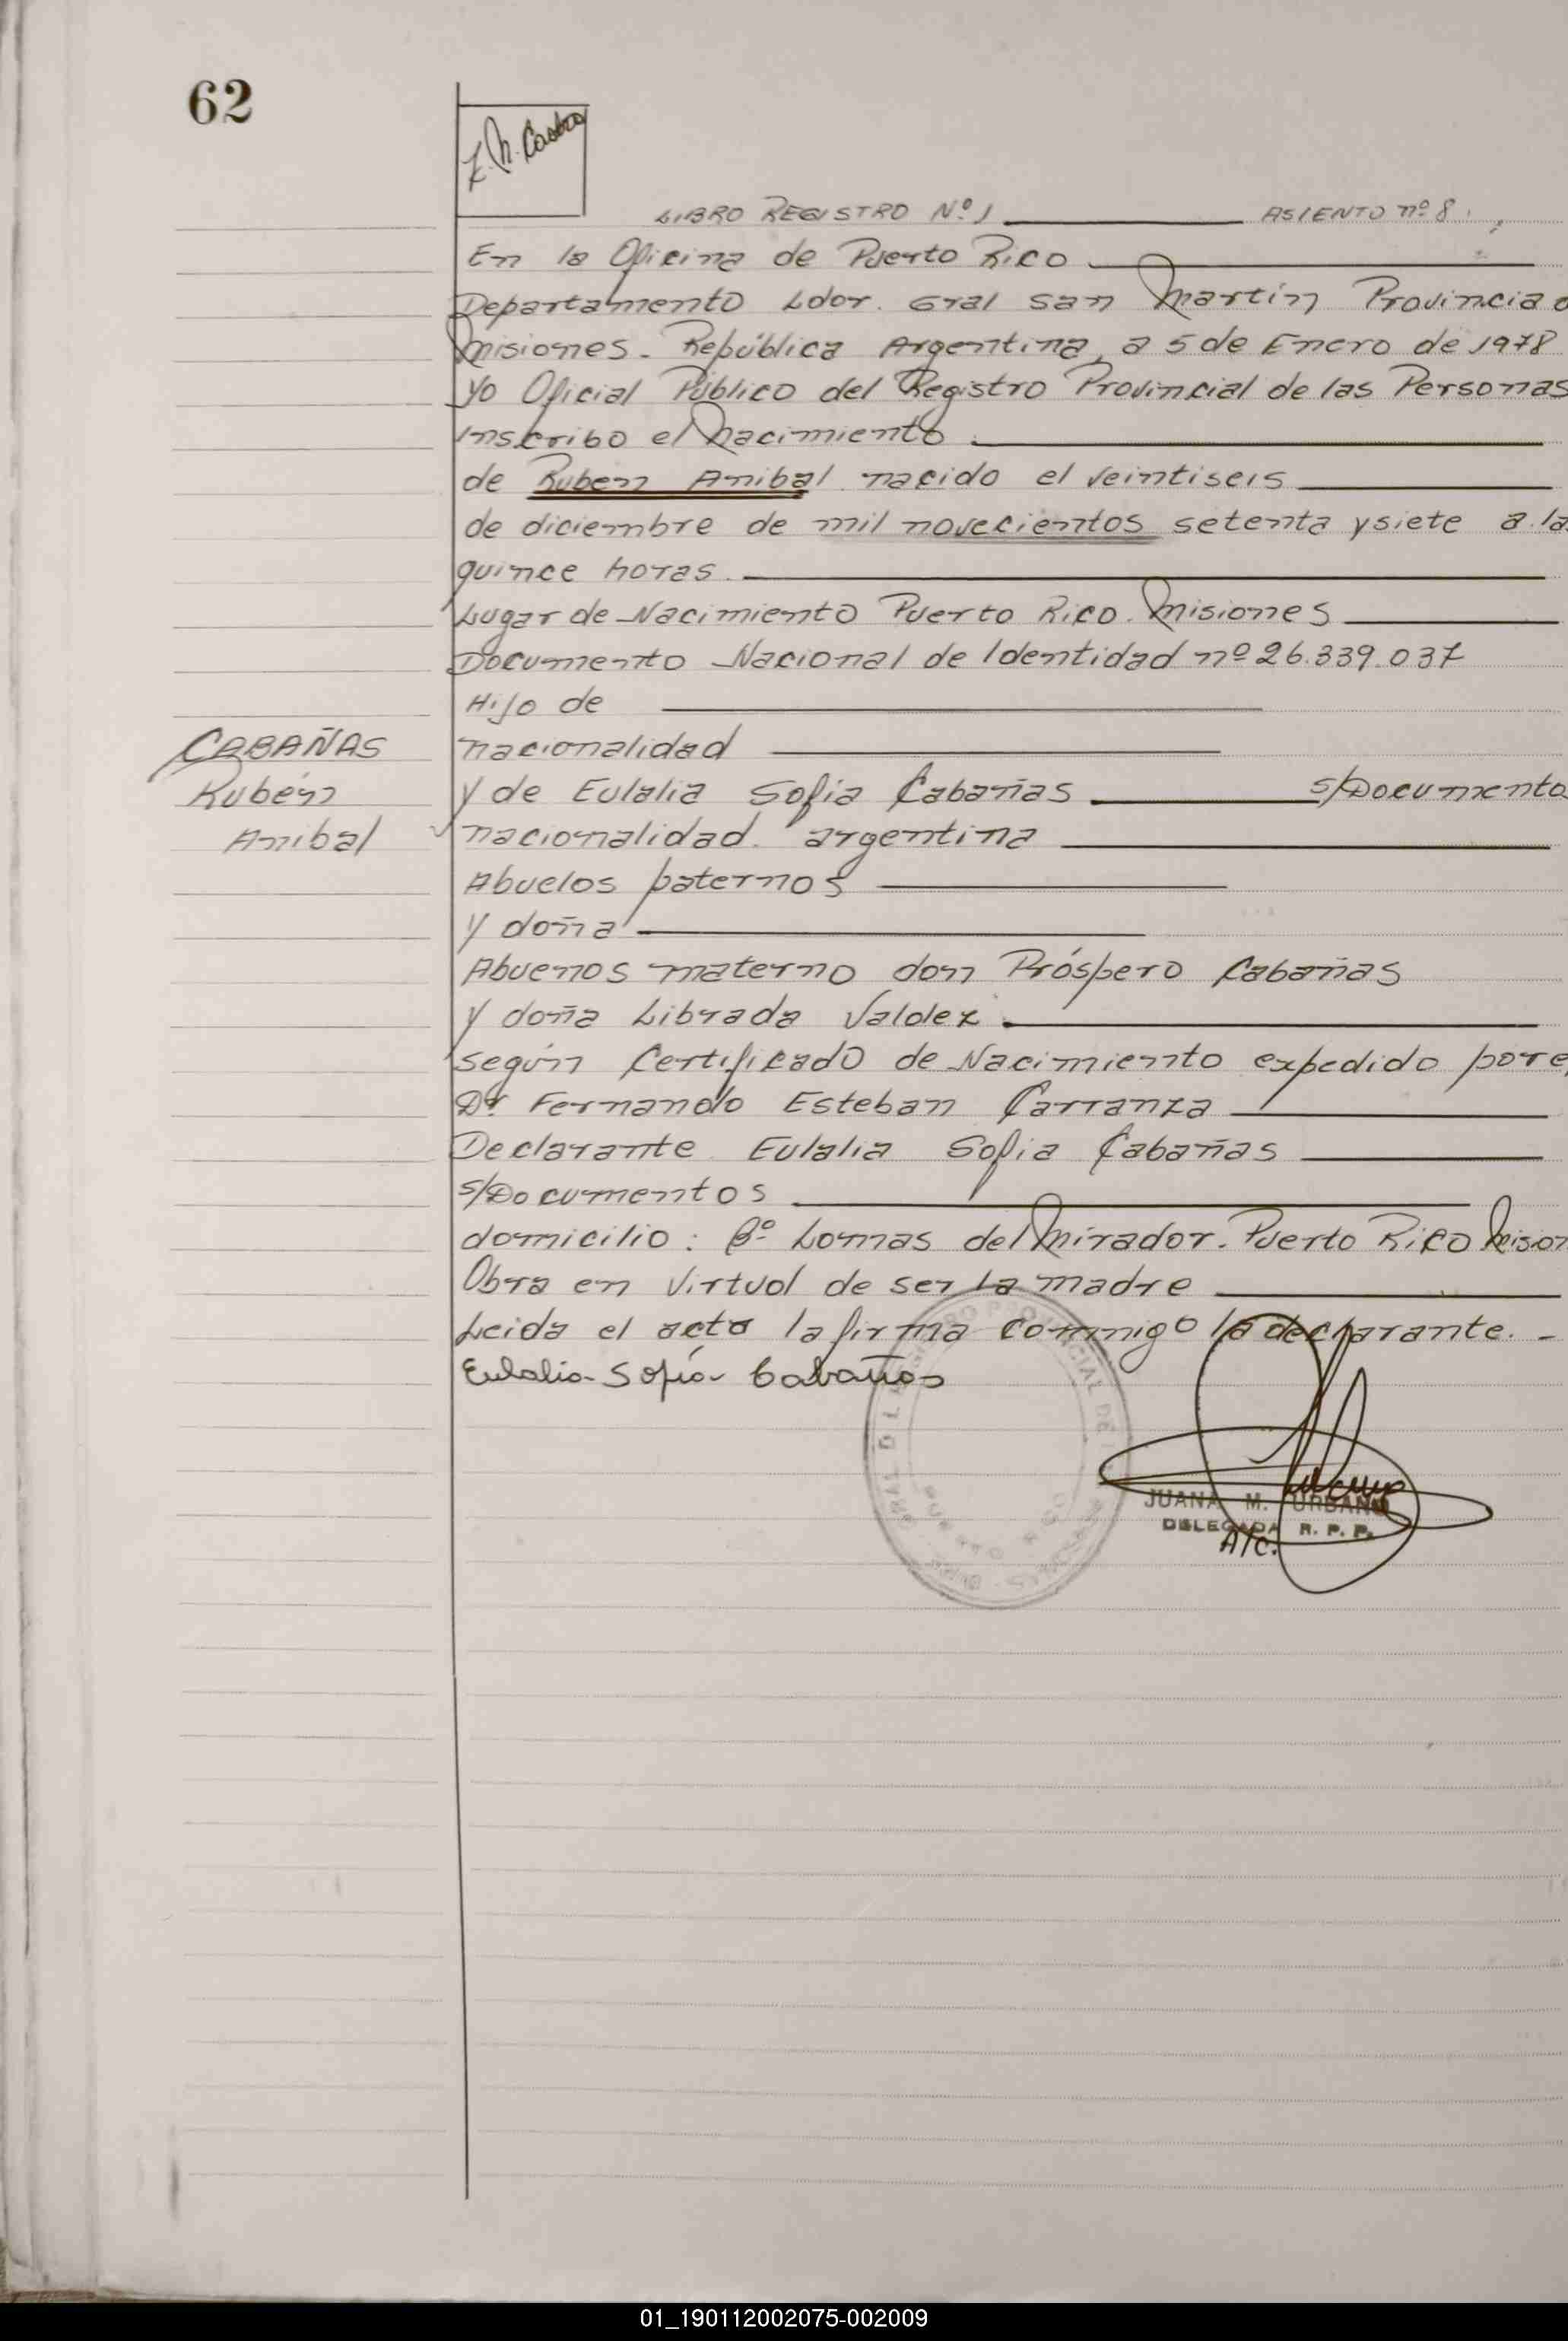 62
LIBRO REGISTRO Nº 1 ASIENTO nº 8.
En la Oficina de Puerto Rico
Departamento Ldor. Gral San Martín Provincia
Misiones - República Argentina, a 5 de Enero de 1978
yo Oficial Público del Registro Provincial de las Personas
Inscribo el Nacimiento
de Ruben Anibal nacido el veintiseis
de diciembre de mil novecientos setenta y siete a la
quince horas.
Lugar de Nacimiento Puerto Rico. Misiones
Documento Nacional de Identidad nº 26.339.037
Hijo de
CABAÑAS nacionalidad
Rubén y de Eulalia Sofia Cabañas s/Documento
Anibal nacionalidad. argentina
Abuelos paternos
y doña
Abuenos materno don Próspero Cabañas
y doña Librada Valdez.
según Certificado de Nacimiento expedido por e
Dr Fernando Esteban Carranza
Declarante Eulalia Sofia Cabañas
s/Documentos
domicilio: Bº Lomas del Mirador. Puerto Rico Mision
Obra en Virtud de ser La madre
Leida el acta la firma conmigo la declarante. -
Eulalia Sofía Cabañas
JUANA M. URBANO
DELEGADA R. P. P.
A/C.
01_190112002075-002009